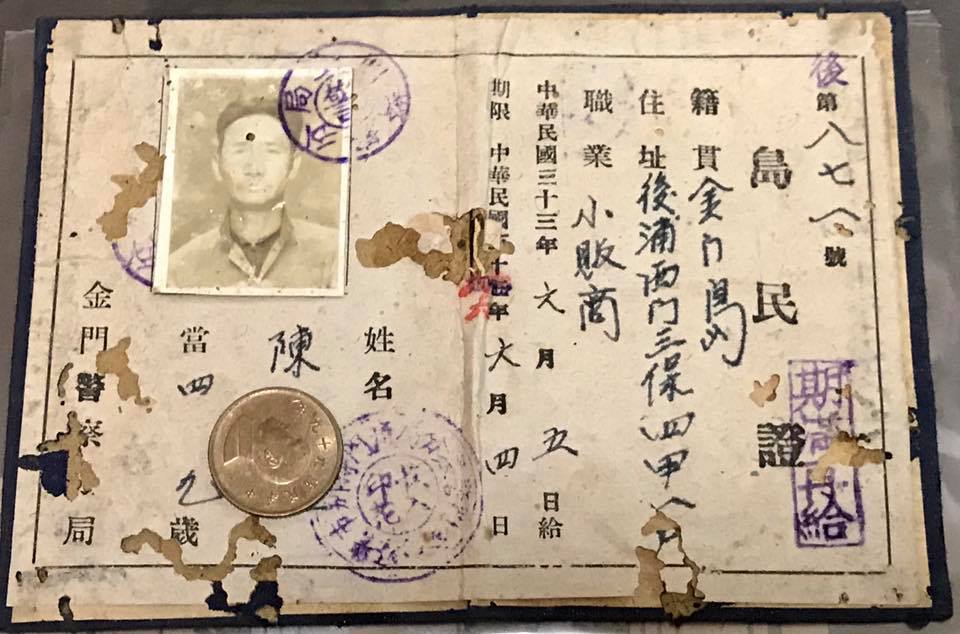 後第八七八號
島民證
籍貫 金門島
住址 後浦西門三保四甲八
職業 小販商
中華民國三十三年六月五日給
期限 中華民國三十四年六月四日
姓名 陳
當四九歲
金門警察局